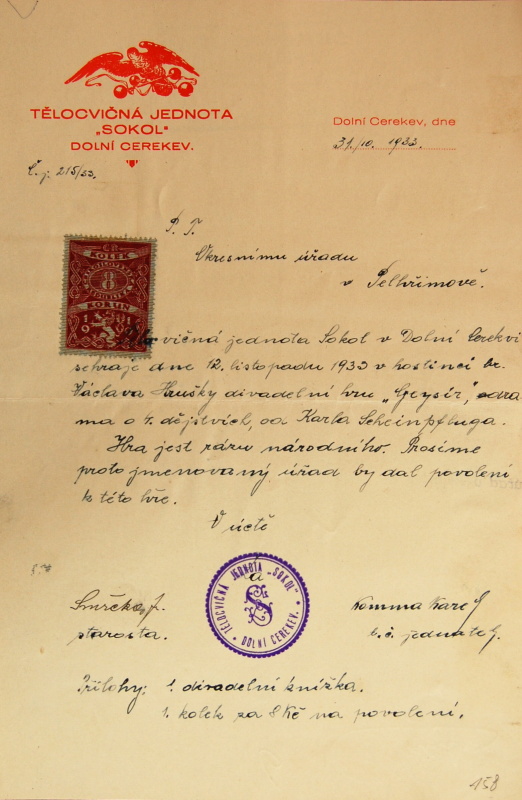 TĚLOCVIČNÁ JEDNOTA
„SOKOL“
DOLNÍ CEREKEV.
Dolní Cerekev, dne
31./10. 1933.
Č. j. 215/33.
P. T.
Okresnímu úřadu
v Pelhřimově.
KOLEK
8
KORUN
Tělocvičná jednota Sokol v Dolní Cerekvi
sehraje dne 12. listopadu 1933 v hostinci br.
Václava Hrušky divadelní hru „Geysír“, dra
ma o 4. dějstvích, od Karla Scheinpfluga.
Hra jest rázu národního. Prosíme
proto jmenovaný úřad by dal povolení
k této hře.
V úctě
TĚLOCVIČNÁ JEDNOTA „SOKOL“
DOLNÍ CEREKEV.
Smrčka J.
starosta.
Komma Karel
t. č. jednatel.
Přílohy: 1. divadelní knížka.
1. kolek za 8 Kč na povolení.
158